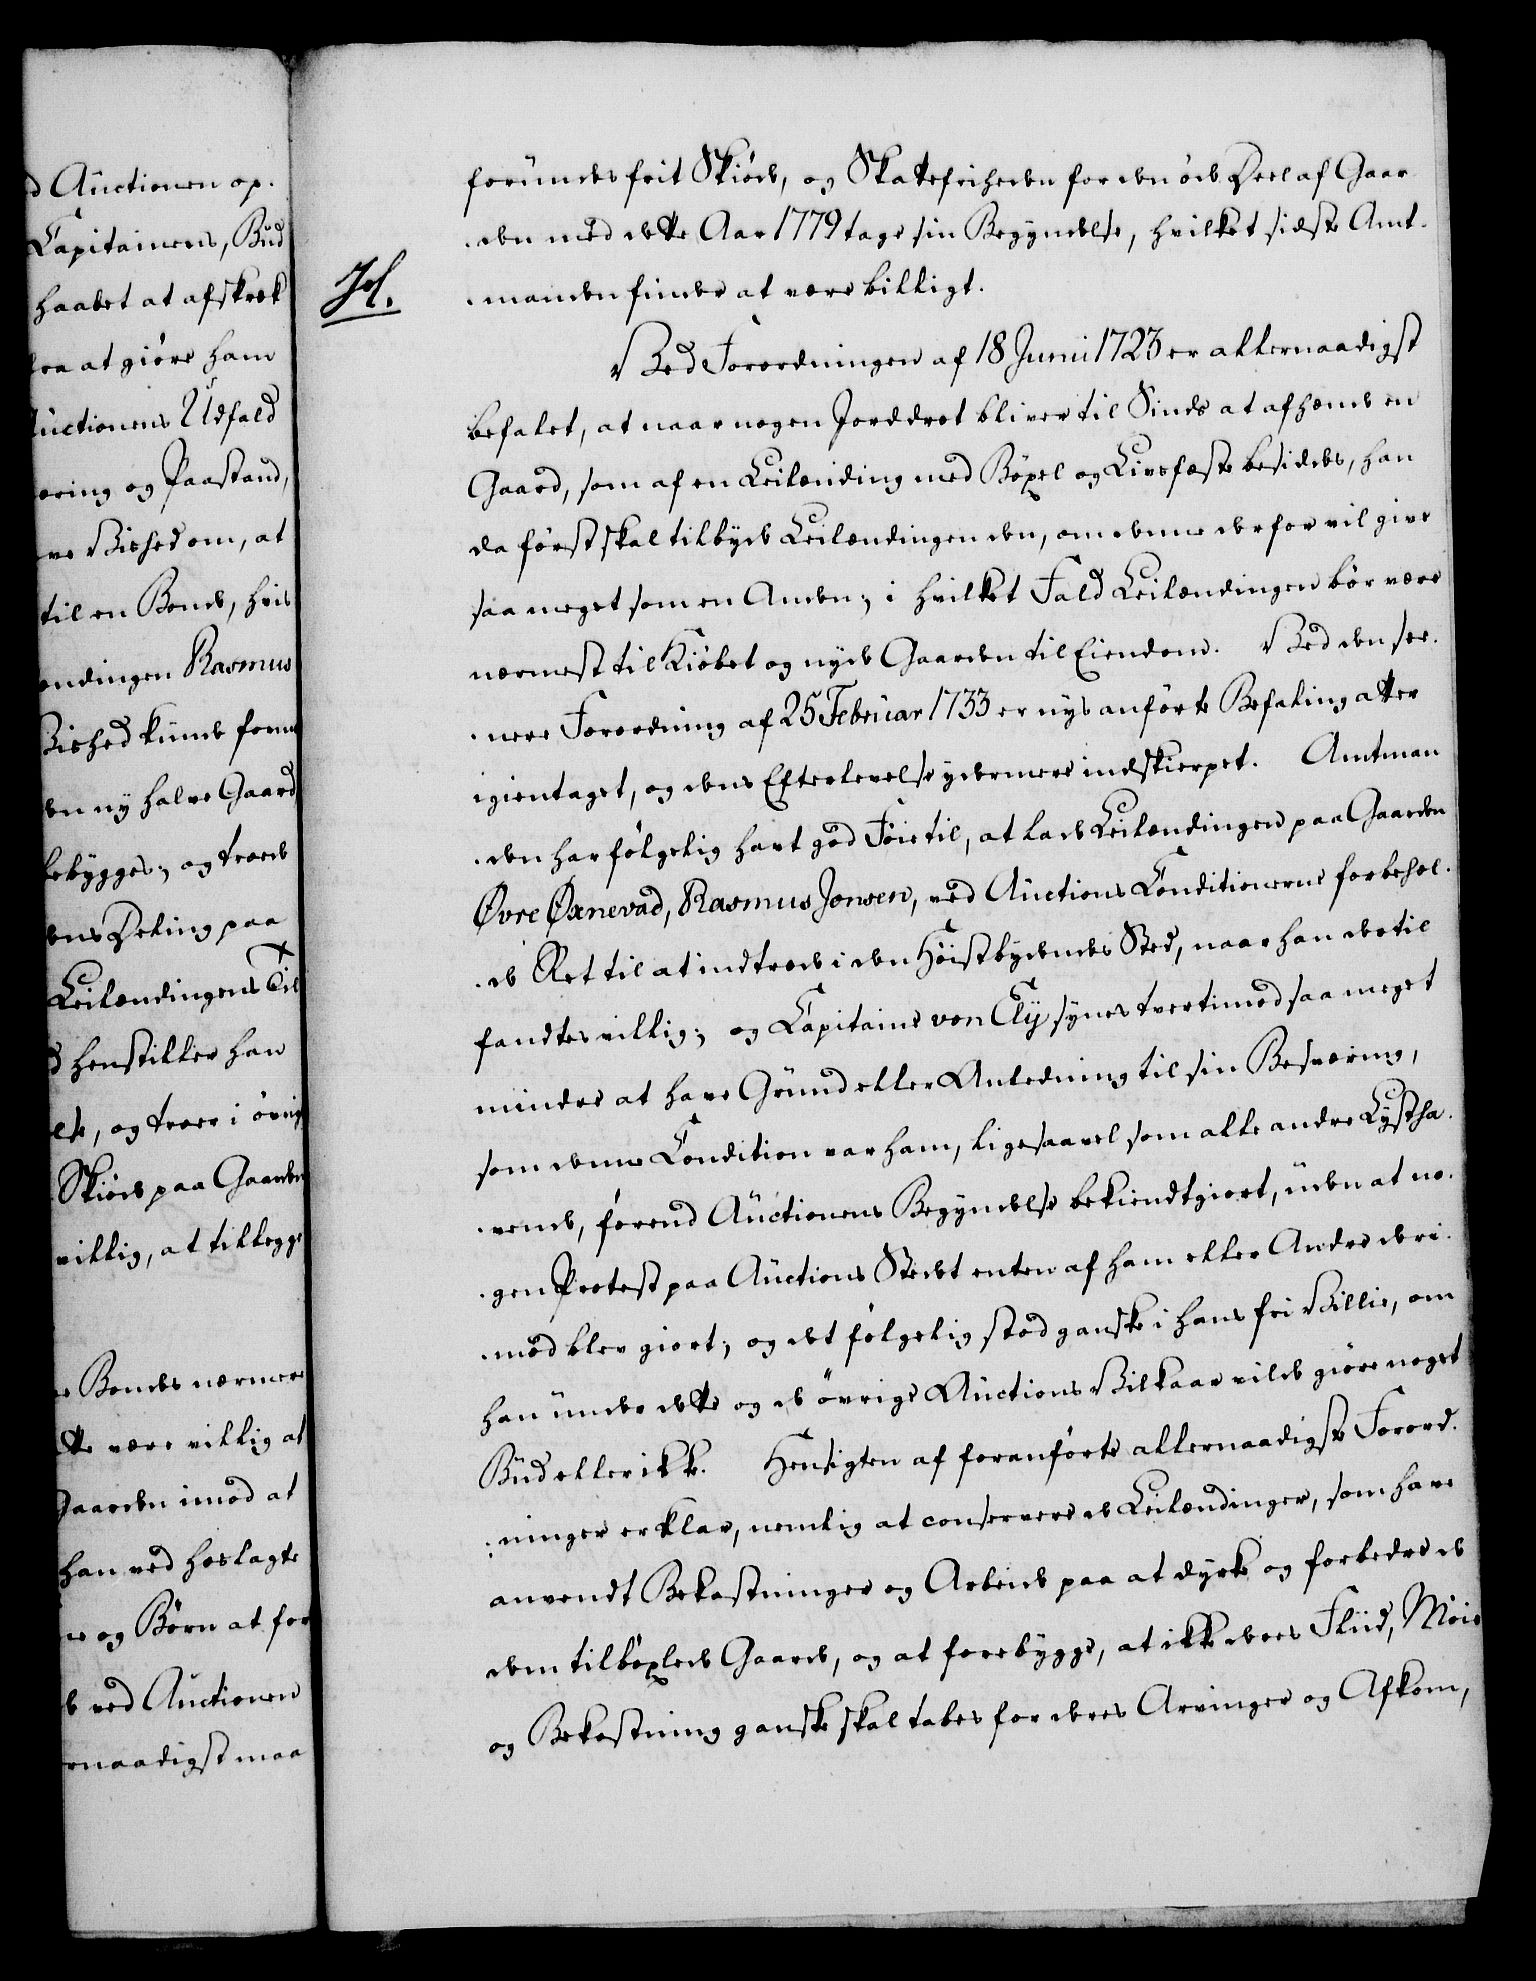 d Auctionen op.
Capitainens, Bud
haabet at afskrek
lea at giøre ham
Auctionens Udfald
æring og Paastand,
ve Vished om, at
til en Bonde, hvis
ændingen Rasmus
Vished kunde form
en ny halve Gaard
bebygges; og træde
ens Deling paa
Leilændingens Til
d henstiller han
else, og troer i øvrig
Skiøde paa Gaarden
villig, at tillegge
e Bondes nærmere
tte være villig at
Gaarden imod at
han ved hoslagte
ne og Børn at for
e ved Auctionen
rnaadigst maa
forundes frit Skiøde, og Skattefriheden for den øde Deel af Gaar
den med dette Aar 1779 tage sin Begyndelse, hvilket sidste Amt-
manden finder at være billigt.
Ved Forordningen af 18 Junii 1723 er allernaadigst
befalet, at naar nogen Jorddrot bliver til Sinds at afhænde en
Gaard, som af en Leilænding med Bøxel og Livsfæste besiddes, han
da først skal tilbyde Leilændingen den, om denne derfor vil give
saa meget som en Anden; i hvilket Fald Leilændingen bør være
nærmest til Kiøbet og nyde Gaarden til Eiendom. Ved den see-
nere Forordning af 25 Februar 1733 er nys anførte Befaling atter
igientaget, og dens Efterlevelse ydermere indskierpet. Amtman
den har følgelig havt god Føie til, at lade Leilændingen paa Gaarden
Øvre Øxnevad, Rasmus Jonsen, ved Auctions Conditionerne forbehol-
de Ret til at indtræde i den Høistbydendes Sted, naar han dertil
fandtes villig; og Capitaine von Ely synes tvertimod saa meget
mindre at have Grund eller Anledning til sin Besværing,
som denne Condition var ham, ligesaavel som alle andre Lystha-
vende, førend Auctionens Begyndelse bekiendtgiort, uden at no-
gen Protest paa Auctions Stedet enten af ham eller Andre deri-
mod blev giort; og det følgelig stod ganske i hans fri Villie, om
han under dette og de øvrige Auctions Vilkaar vilde giøre noget
Bud eller ikke. Hensigten af foranførte allernaadigste Forord-
ninger er klar, nemlig at conservere de Leilændinger, som have
anvendt Bekostninger og Arbeide paa at dyrke og forbedre de
dem tilbøxlede Gaarde, og at forebygge, at ikke deres Fliid, Møie
og Bekostning ganske skal tabes for deres Arvinger og Afkom,